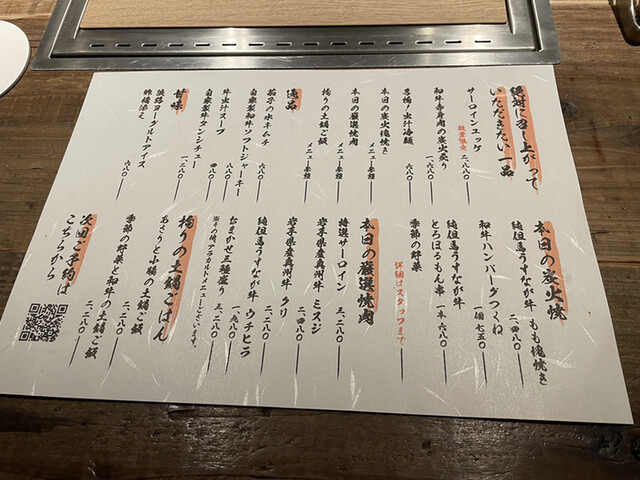 絶対に召し上がって
いただきたい一品
サーロインユッケ
数量限定
二、八八〇
和牛赤身肉の炭火炙り
一、六八〇
名物！出汁冷麺
六八〇
本日の炭火塊焼き
メニュー参照
本日の厳選焼肉
メニュー参照
拘りの土鍋ご飯
メニュー参照
逸品
茄子の水キムチ
六八〇
自家製和牛ソフトジャーキー
八八〇
牛出汁スープ
自家製牛タンシチュー
甘味
一、二八〇
淡路ヨーグルトアイス
六八〇
本日の炭火焼
純但馬うすなが牛 もも塊焼き
二、四八〇
和牛ハンバーグつくね
一個 七五〇
純但馬うすなが牛
とろほるもん串
一本 六八〇
季節の野菜
詳細はスタッフまで
本日の厳選焼肉
特選サーロイン
三、二八〇
岩手県産奥州牛 ミスジ
岩手県産奥州牛 クリ
二、四八〇
純但馬うすなが牛 ウチヒラ
一、九八〇
おまかせ三種盛り
三、二八〇
※その他、アラカルトメニューございます。
拘りの土鍋ごはん
あさりと小腸の土鍋ご飯
二、二八〇
季節の野菜と和牛の土鍋ご飯
二、二八〇
次回ご予約は
こちらから